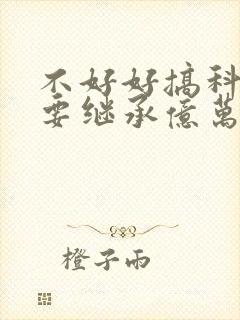 不好好搞科
要继承億萬
橙子雨